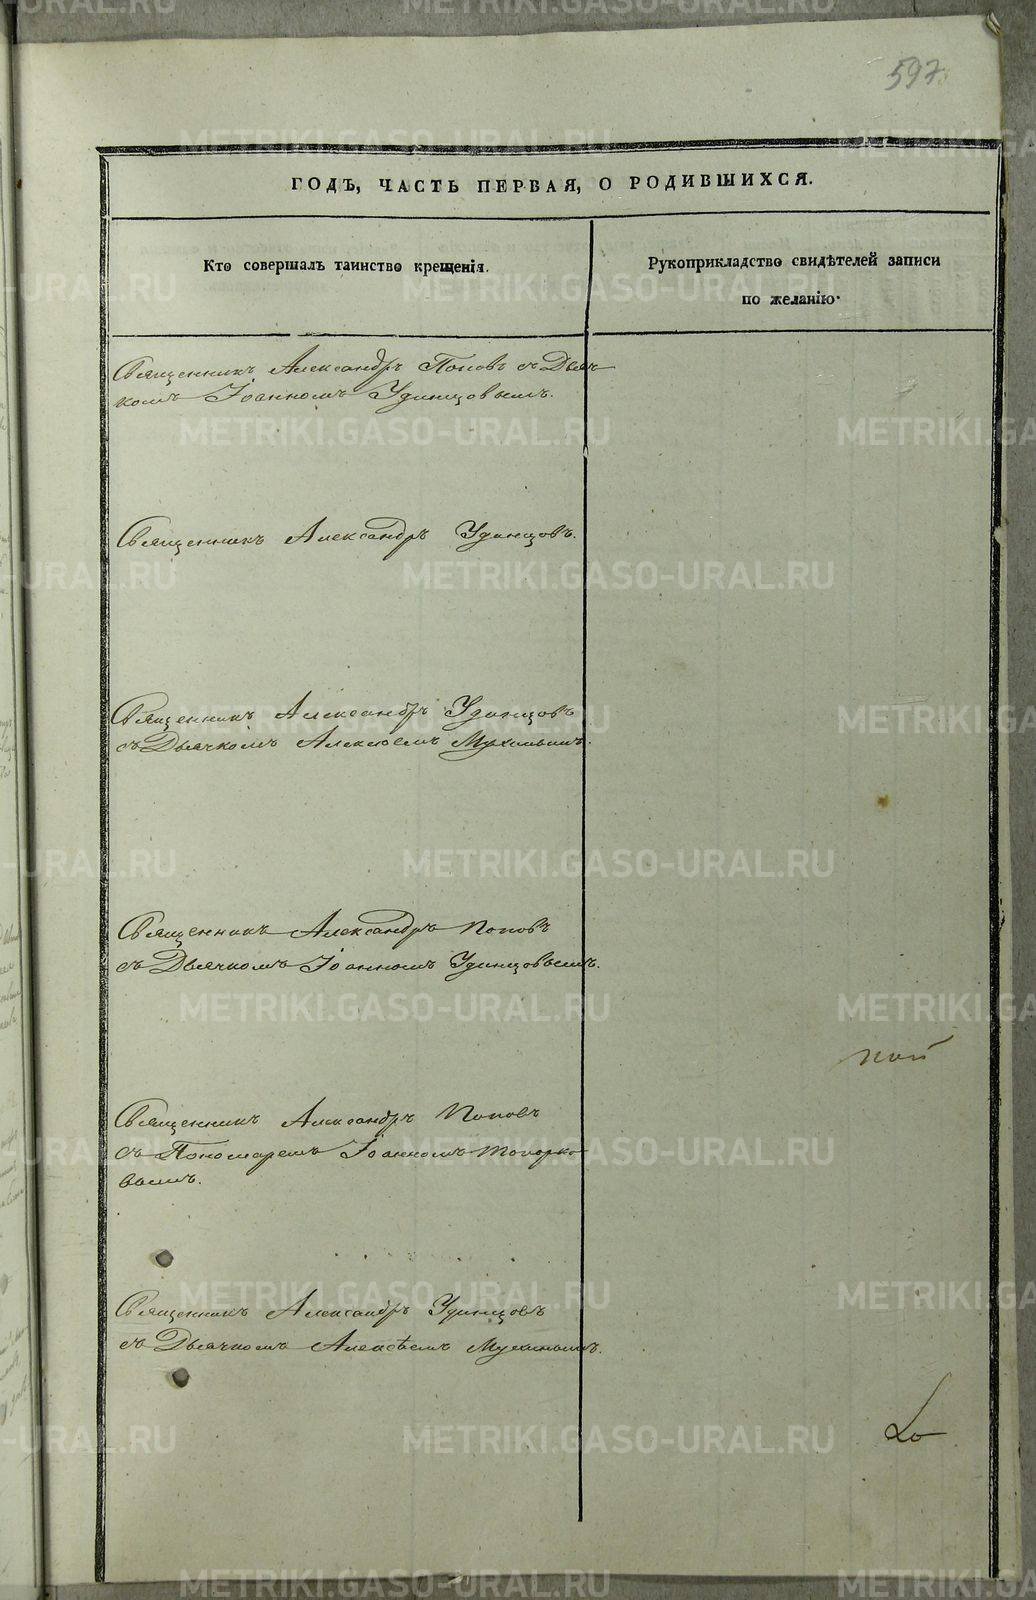 597
ГОДЪ, ЧАСТЬ ПЕРВАЯ, О РОДИВШИХСЯ.
Кто совершалъ таинство крещенія.
Рукоприкладство свидѣтелей записи
по желанію.
Священникъ Александръ Поповъ съ Дьяч-
комъ Іоанномъ Удинцовымъ.
Священникъ Александръ Удинцовъ.
Священникъ Александръ Удинцовъ
съ Дьячкомъ Алексѣемъ Мухинымъ.
Священникъ Александръ Поповъ
съ Дьячкомъ Іоанномъ Удинцовымъ.
ной
Священникъ Александръ Поповъ
съ Пономаремъ Іоанномъ Топорко-
вымъ.
Священникъ Александръ Удинцовъ
съ Дьячкомъ Алексѣемъ Мухинымъ.
METRIKI.GASO-URAL.RU